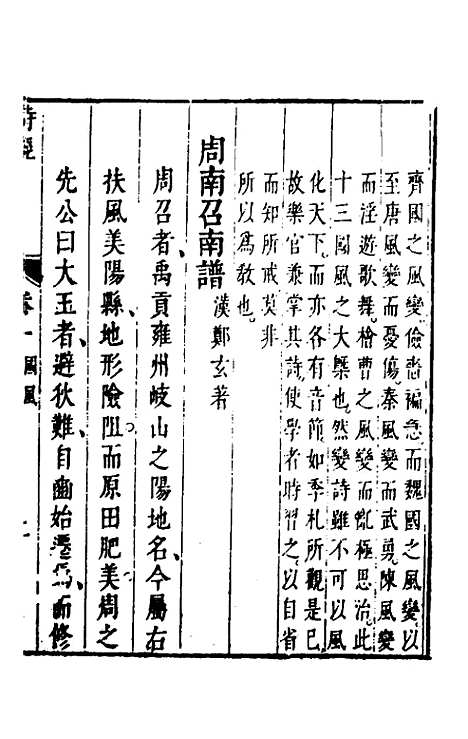 齊國之風變儉嗇褊急而魏國之風變以
至唐風變而憂傷秦風變而武勇陳風變
而淫遊歌舞檜曹之風變而亂極思治此
十三國風之大槩也然變詩雖不可以風
化天下而亦各有音節如季札所觀是已
故樂官兼掌其詩使學者時習之以自省
而知所戒莫非
所以爲教也
周南召南譜 漢鄭玄著
周召者禹貢雍州岐山之陽地名今屬右
扶風美陽縣地形險阻而原田肥美周之
先公曰大王者避狄難自豳始遷焉而修
詩經 卷一 國風